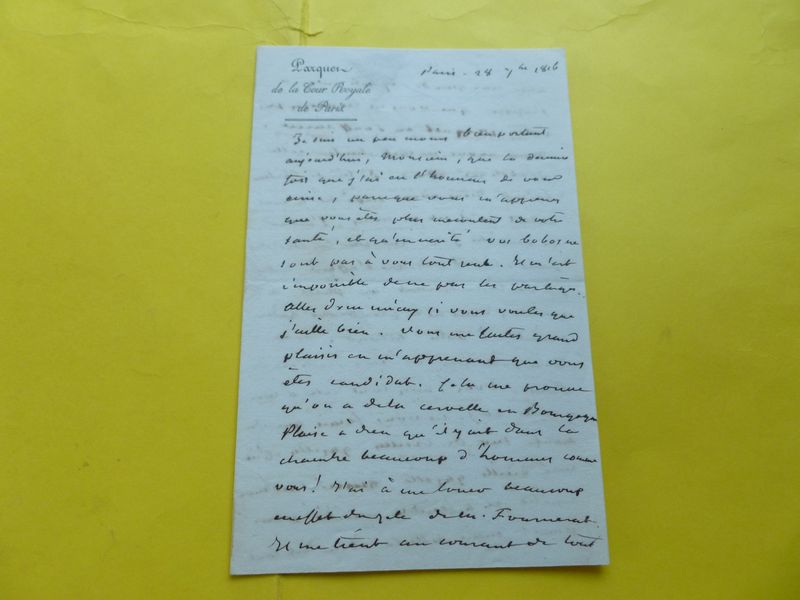 Parquet
de la Cour Royale
de Paris
Paris - 28 7bre 1816
Je suis un peu moins bien portant
aujourd'hui, Monsieur, que la dernière
fois que j'ai eu l'honneur de vous
parce que vous m'apprenez
que vous êtes plus mécontent de votre
santé, et qu'en vérité vos bobos ne
sont pas à vous tout seul. Il m'est
impossible de ne pas les partager.
Allez donc mieux si vous voulez que
j'aille bien. Vous me faites grand
plaisir en m'apprenant que vous
êtes candidat. Cela me prouve
qu'on a de la cervelle en Bourgogne
Plaise à dieu qu'il y ait dans la
chambre beaucoup d'hommes comme
vous! J'ai à me louer beaucoup
en effet du zèle de M. Fournerat.
Il me tient au courant de tout